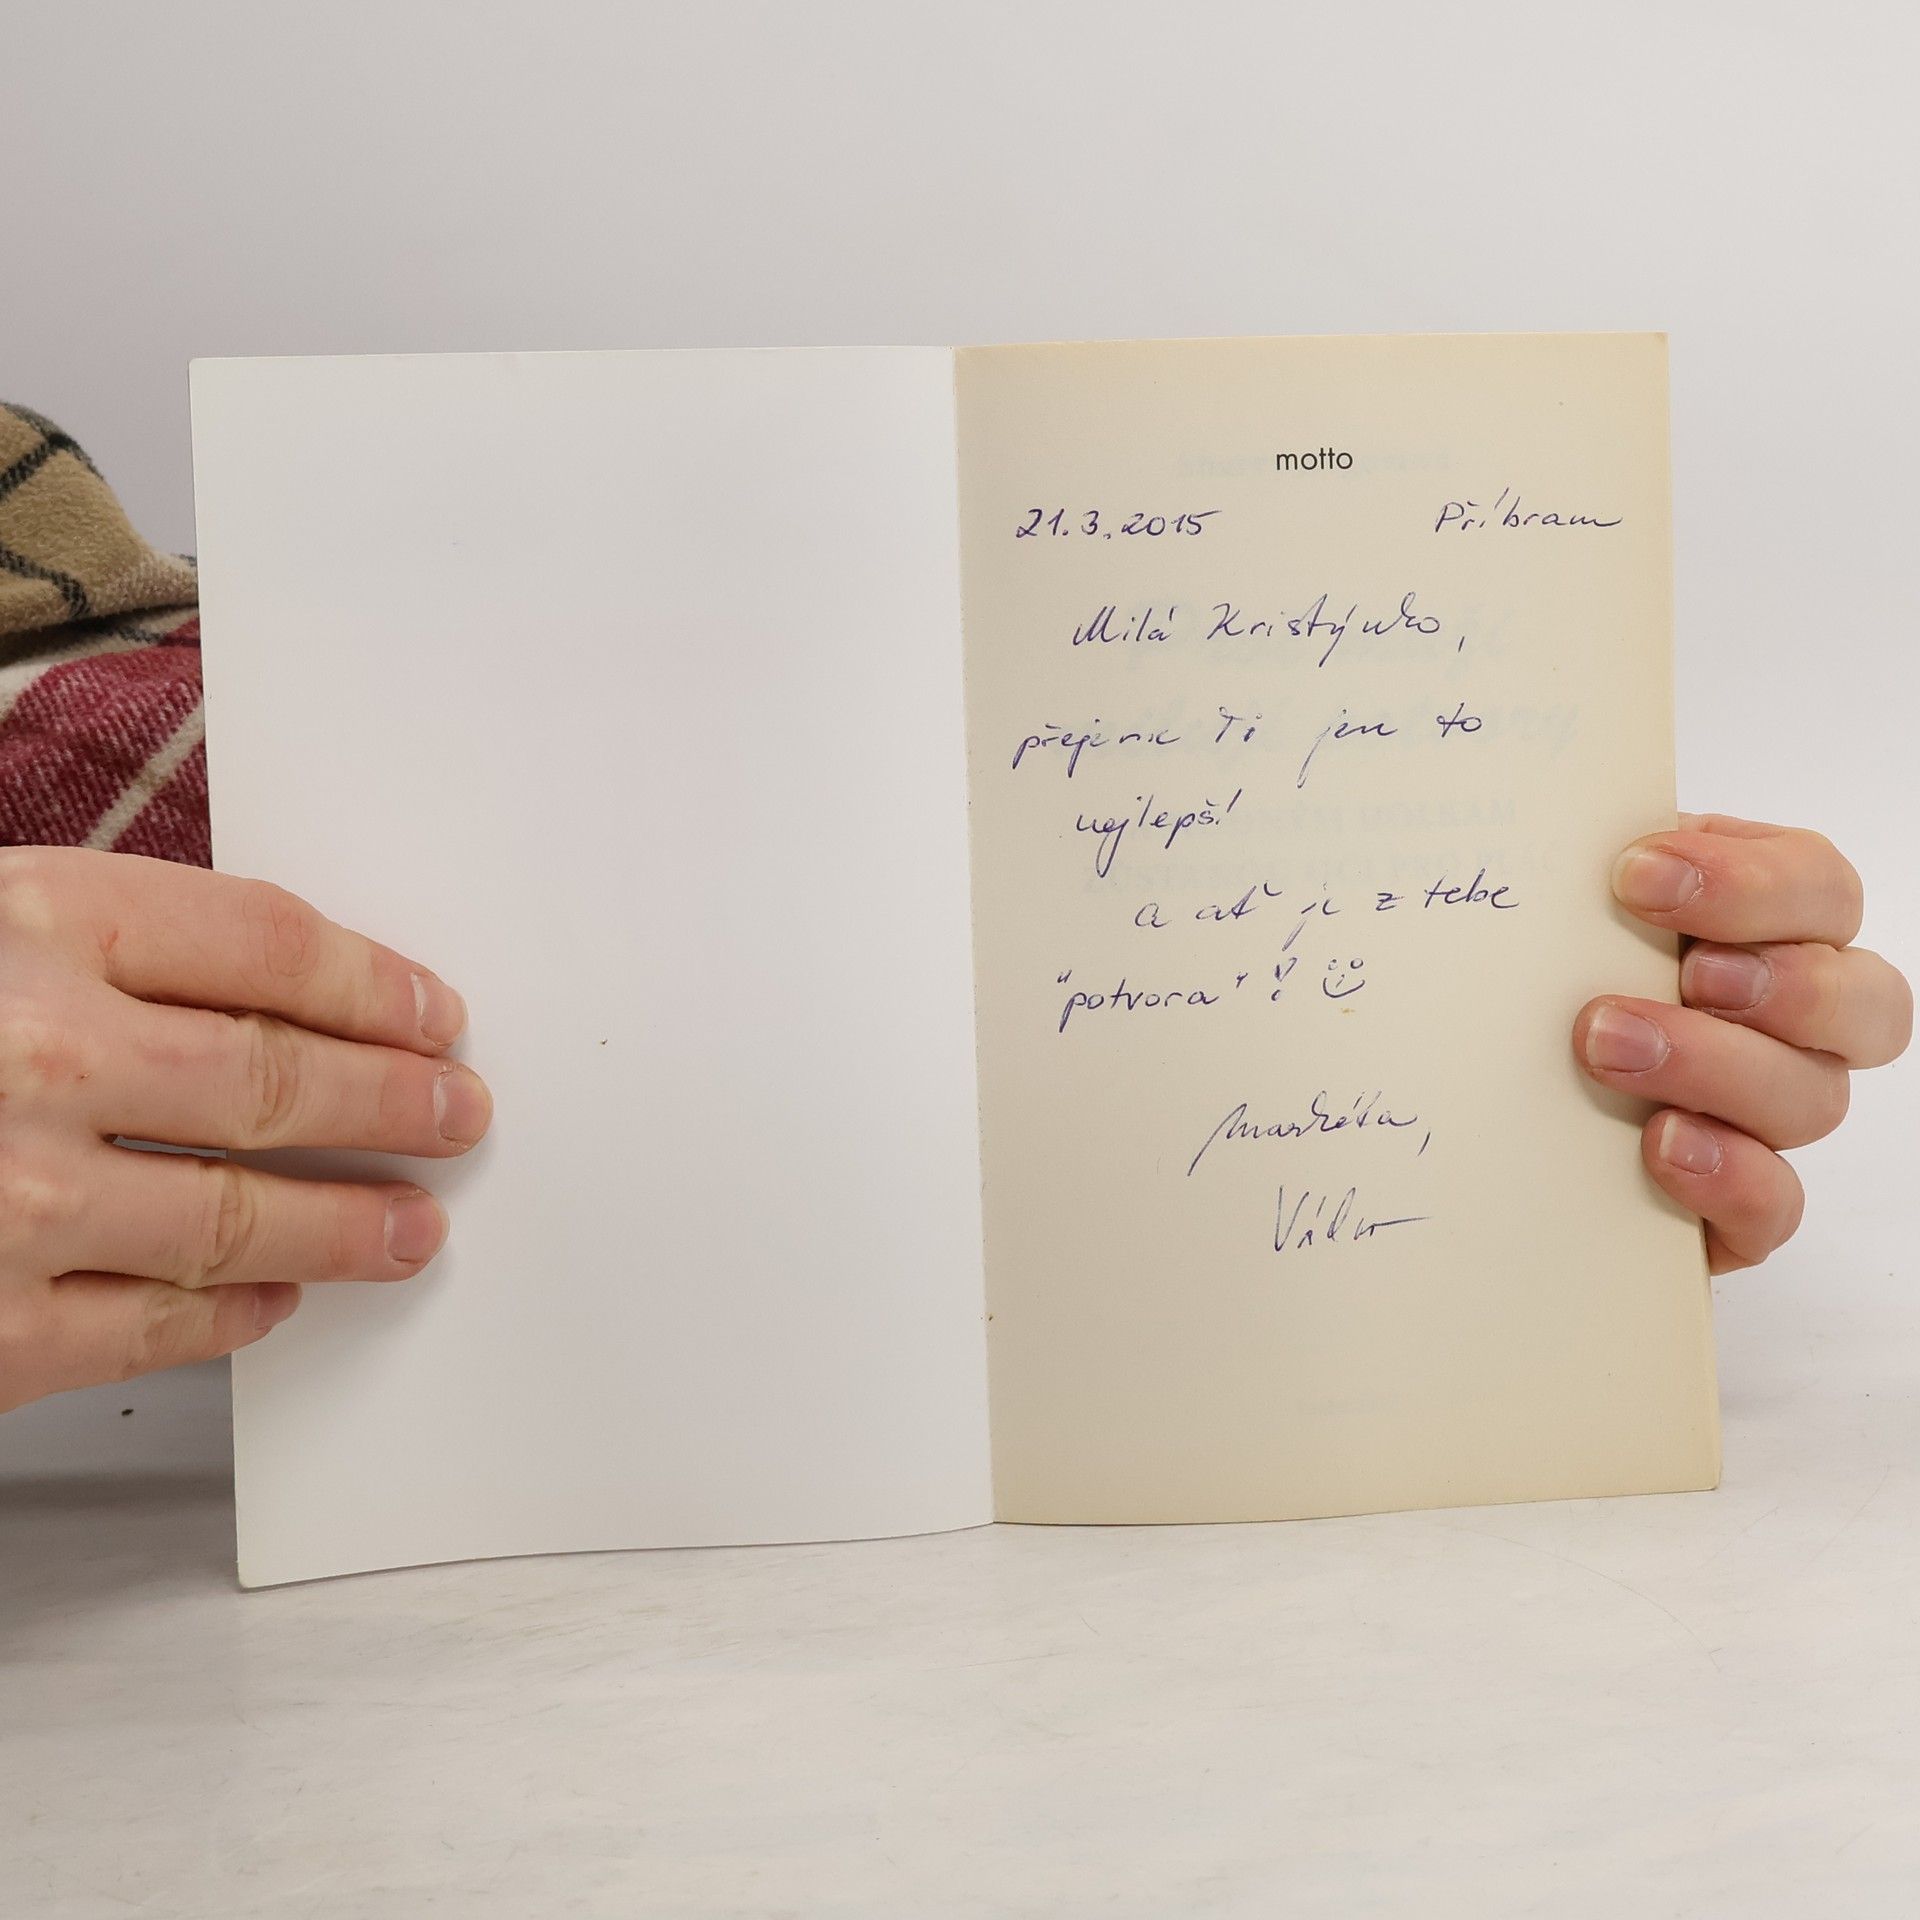 motto
21.3.2015 Příbram
Milá Kristýnko,
přejeme Ti jen to
nejlepší
a ať je z tebe
"potvora"! ☺
Markéta,